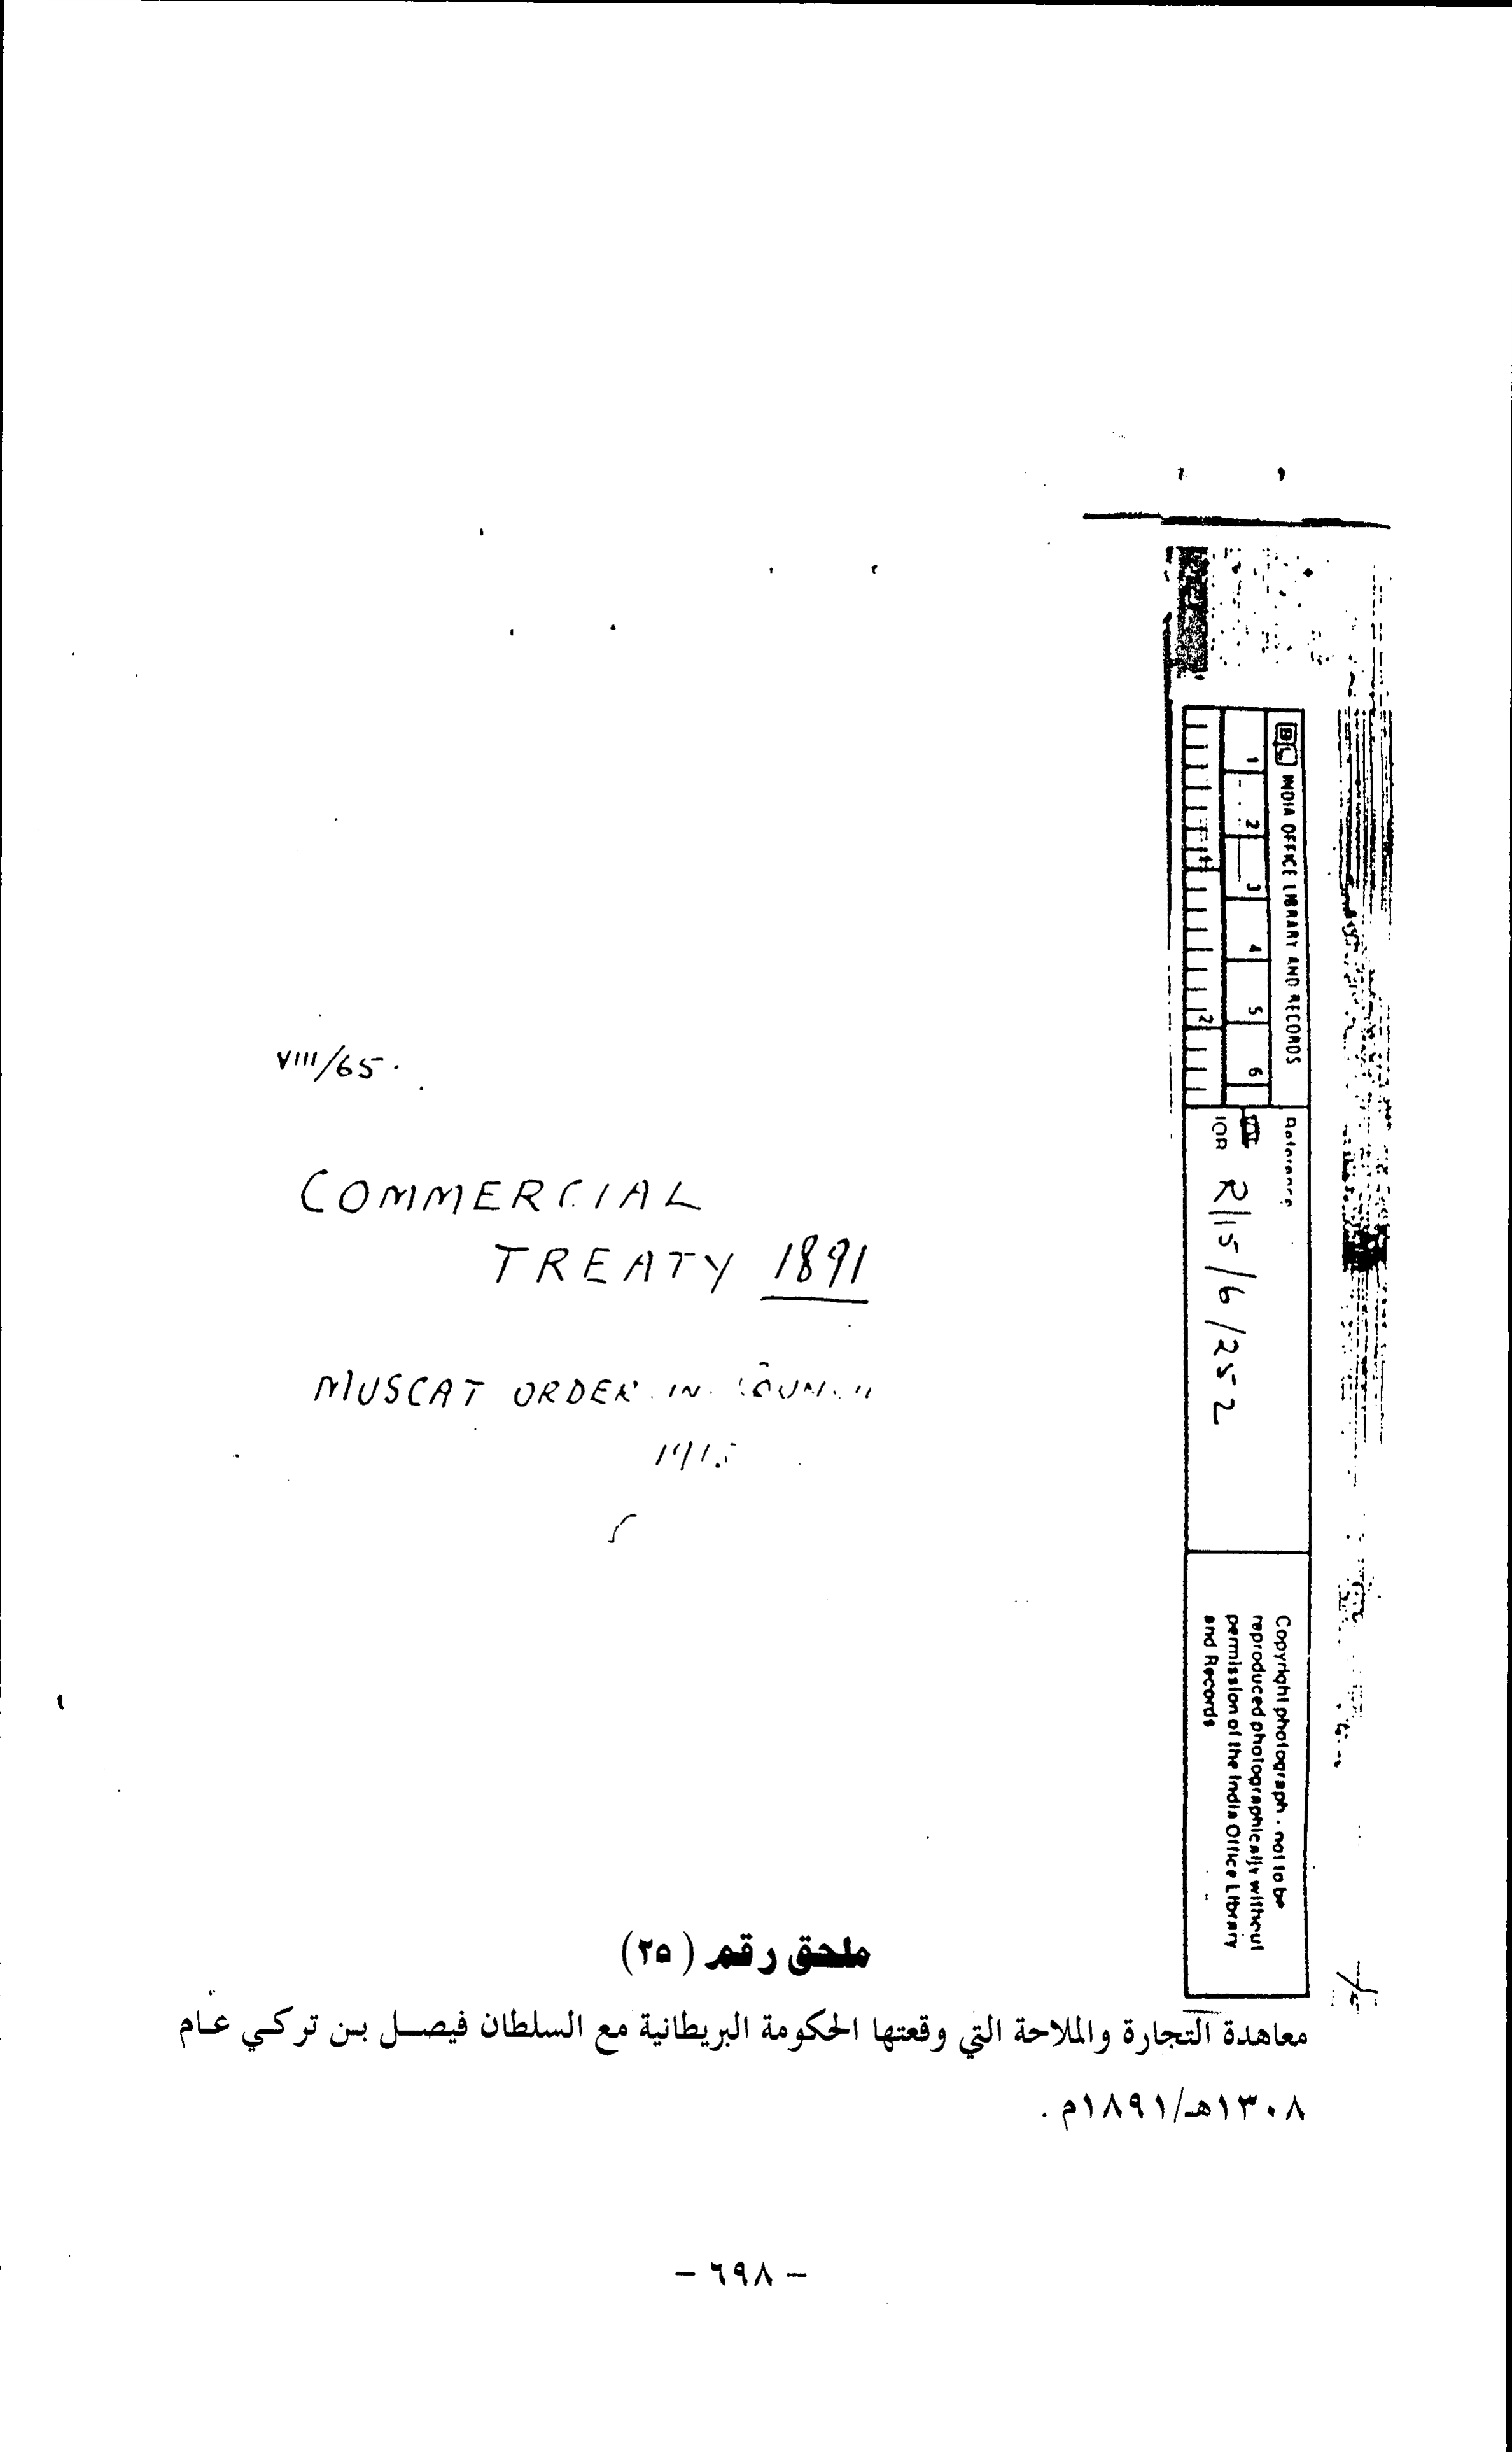 VIII/65.
COMMERCIAL
TREATY 1891
MUSCAT ORDER IN
BL INDIA OFFICE LIBRARY AND RECORDS
1 2 3 4 5 6
2
Reference
IOR R/15/6/252
Copyright photograph - not to be
reproduced photographically without
permission of the India Office Library
and Records
ملحق رقم (٢٥)
معاهدة التجارة والملاحة التي وقعتها الحكومة البريطانية مع السلطان فيصل بن تركي عام
١٣٠٨هـ/١٨٩١م .
- ٦٩٨ -